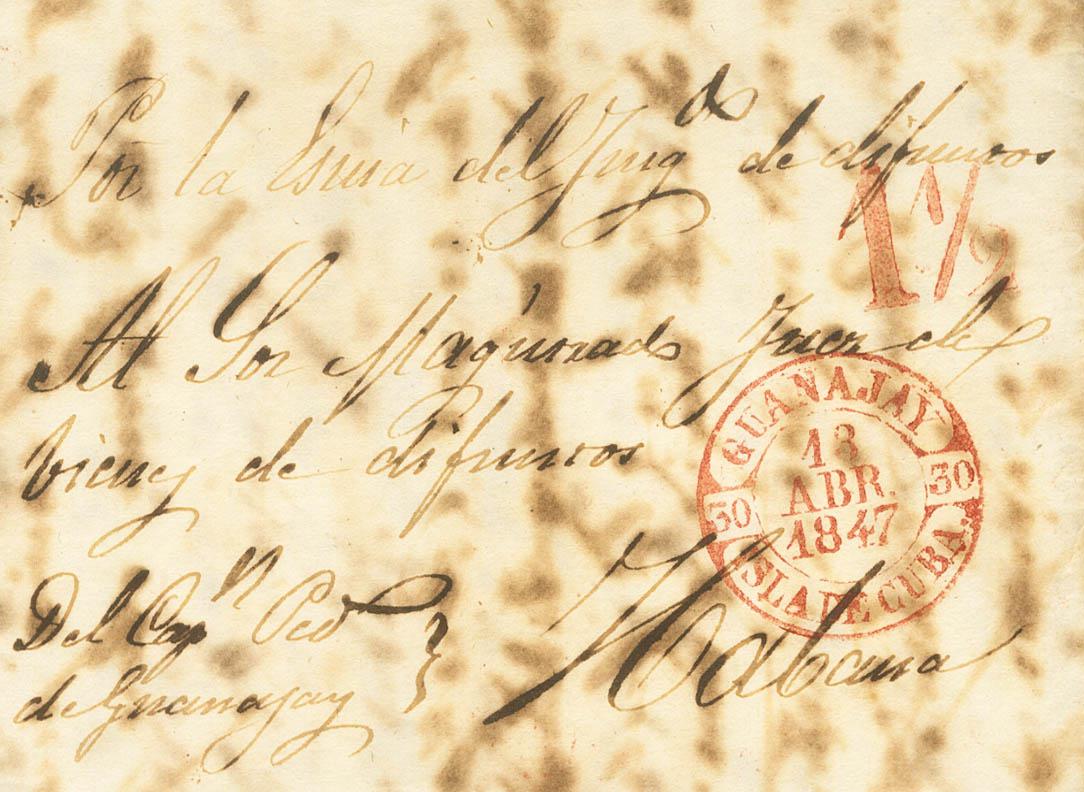 Por la Esnia del Juzgdo de difuntos
1 1/2
Al Sor Magistrado Juez de
vienes de Difuntos
Del Capn Pedo
de Guanajay
Habana
GUANAJAY
30 30
18
ABR.
1847
ISLA DE CUBA.